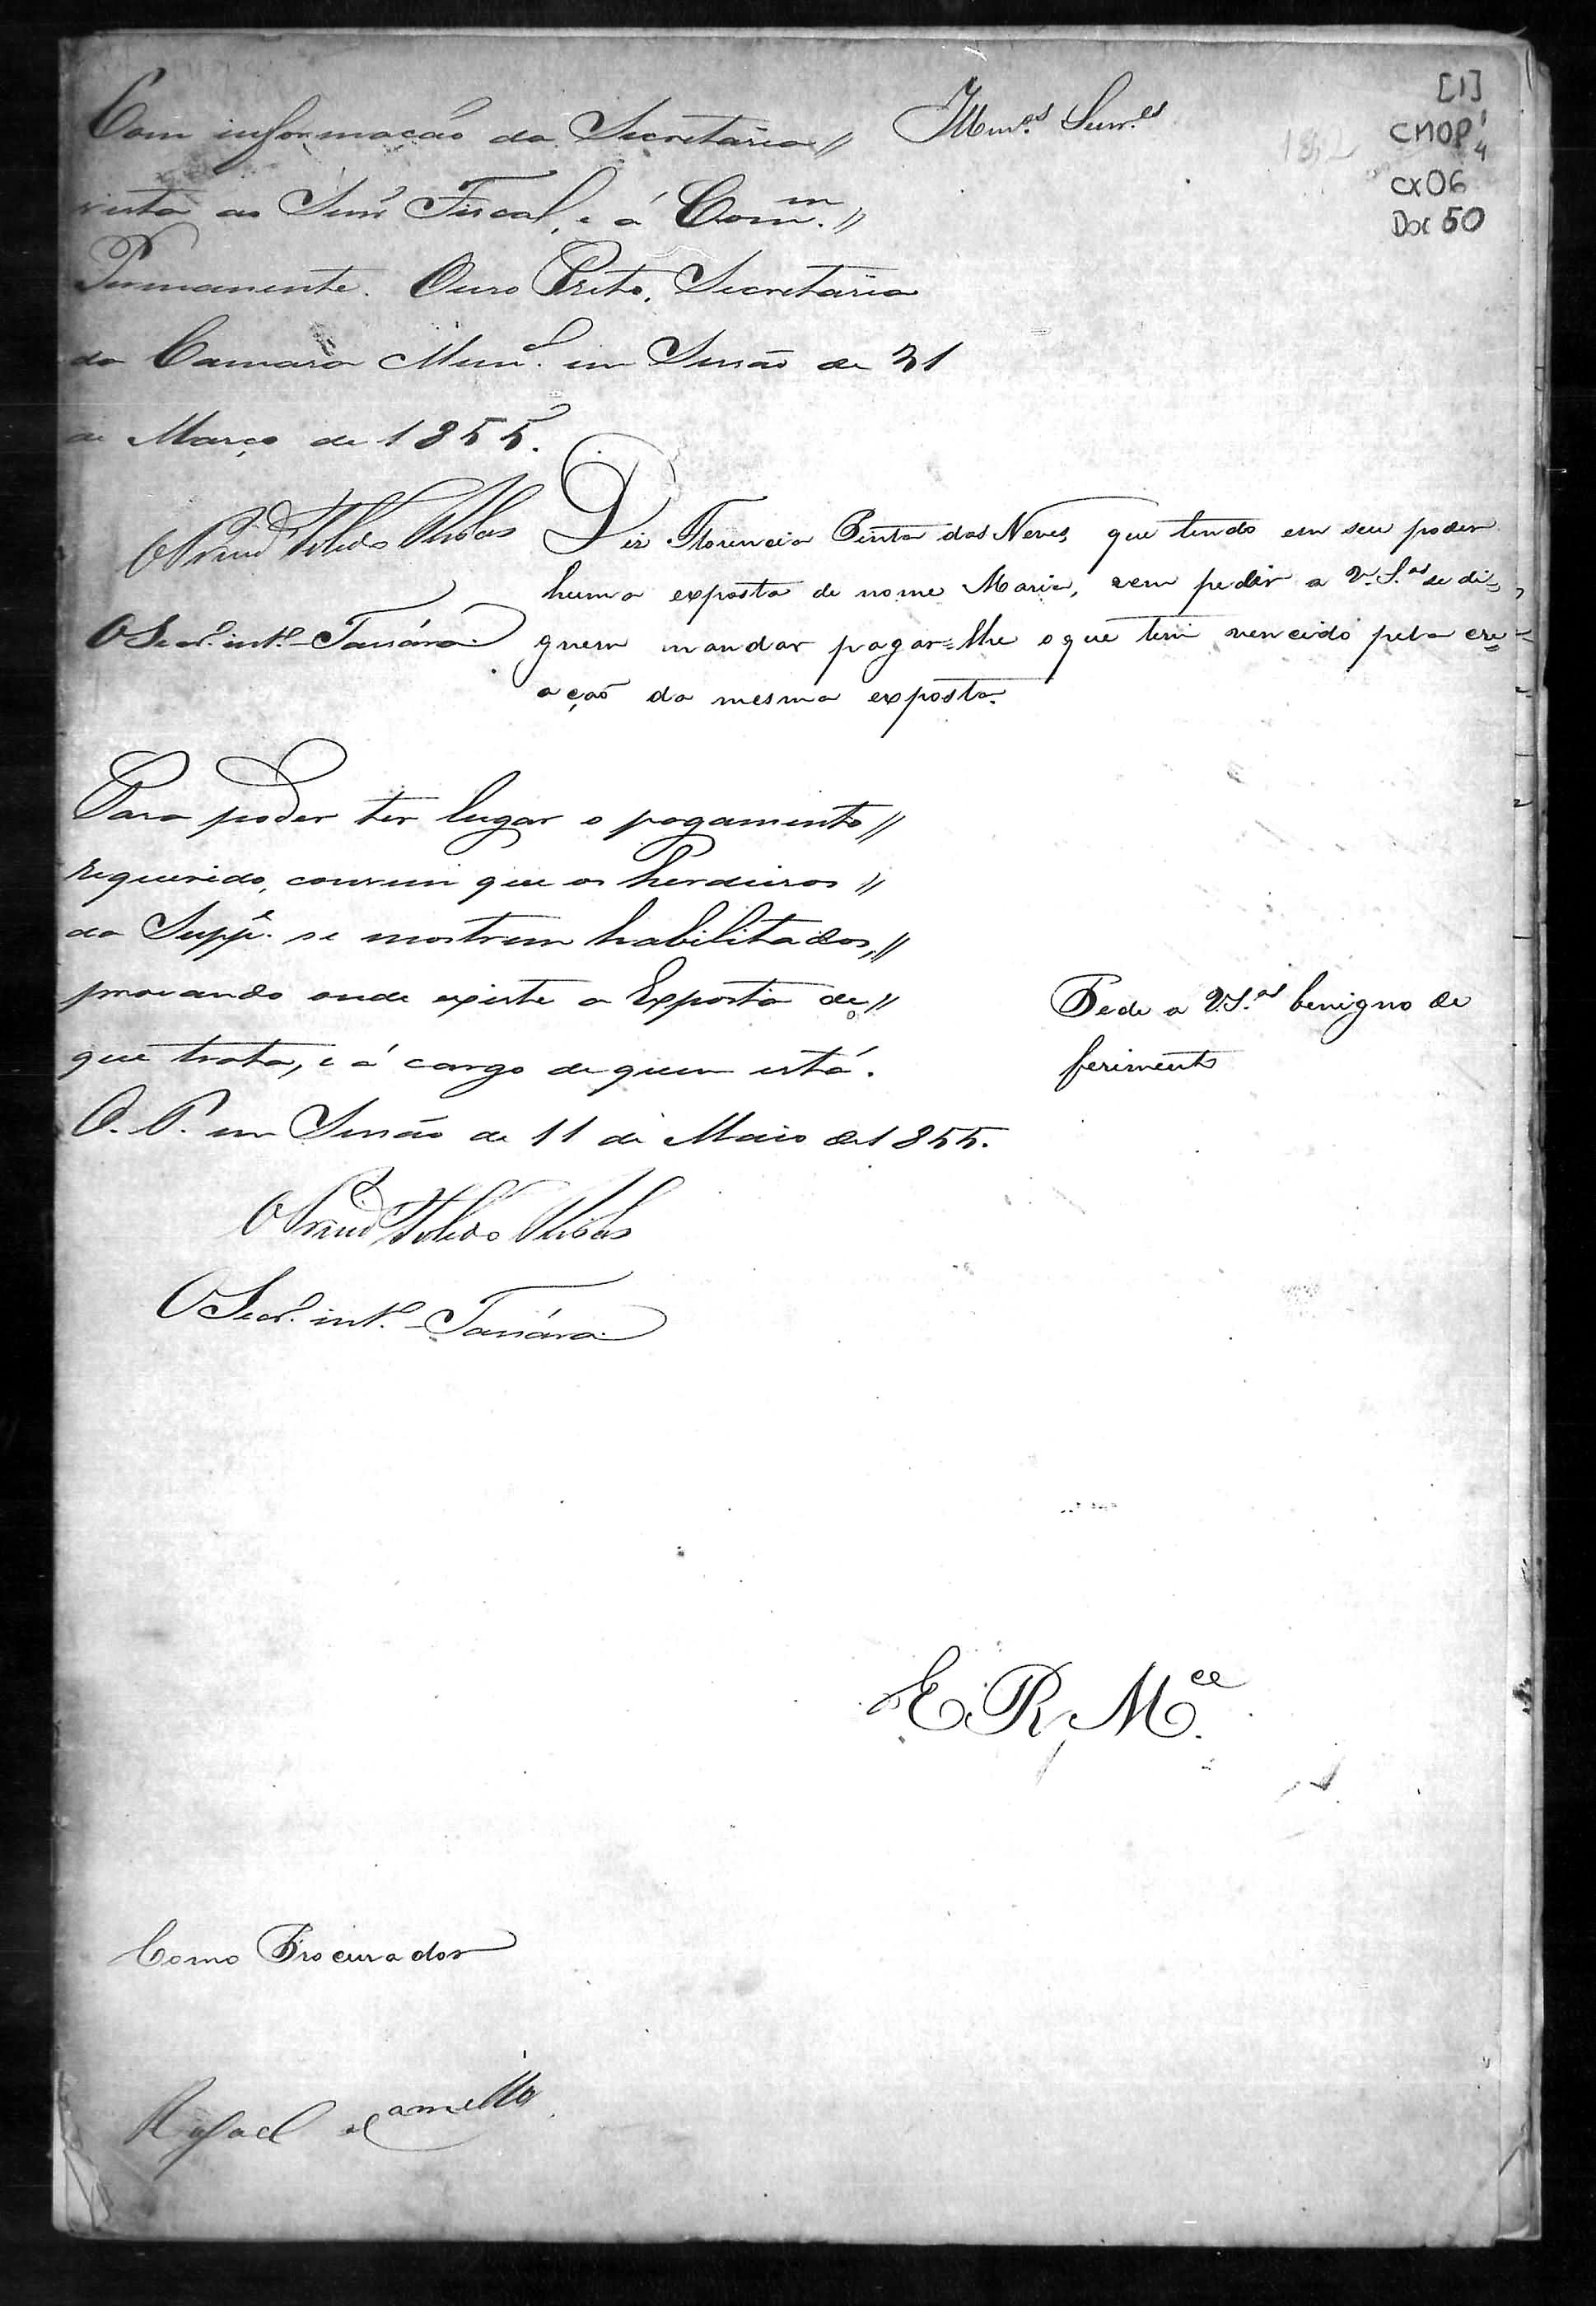 [1]
CMOP 1/4
CX06
Doc 50
Illm.os Senr.es
Com informação da Secretaria //
vista ao Senr Fiscal, e á Com.m //
Permanente. Ouro Preto, Secretaria
da Camara Mun.l em Sessão de 31
de Março de 1855.
O Prezid Toledo Ribas
O Secr.o int.o Tassára
Diz Florencia Pinta das Neves, que tendo em seu poder
huma exposta de nome Maria, vem pedir a V. S.as se di=
gnem mandar pagar=lhe o que tem vencido pela cre=
ação da mesma exposta.
Para poder ter lugar o pagamento //
requerido, convem que os herdeiros //
da Supp.e se mostrem habilitados, //
provando onde existe a Exposta de //
que trata, e á cargo de quem está.
O. P. em Sessão de 11 de Maio de 1855.
O Prezid Toledo Ribas
O Secr.o int.o Tassára
Pede a V. S.as benigno de
ferimento
E. R. M.ce
Como Procurador
Rafael Camello